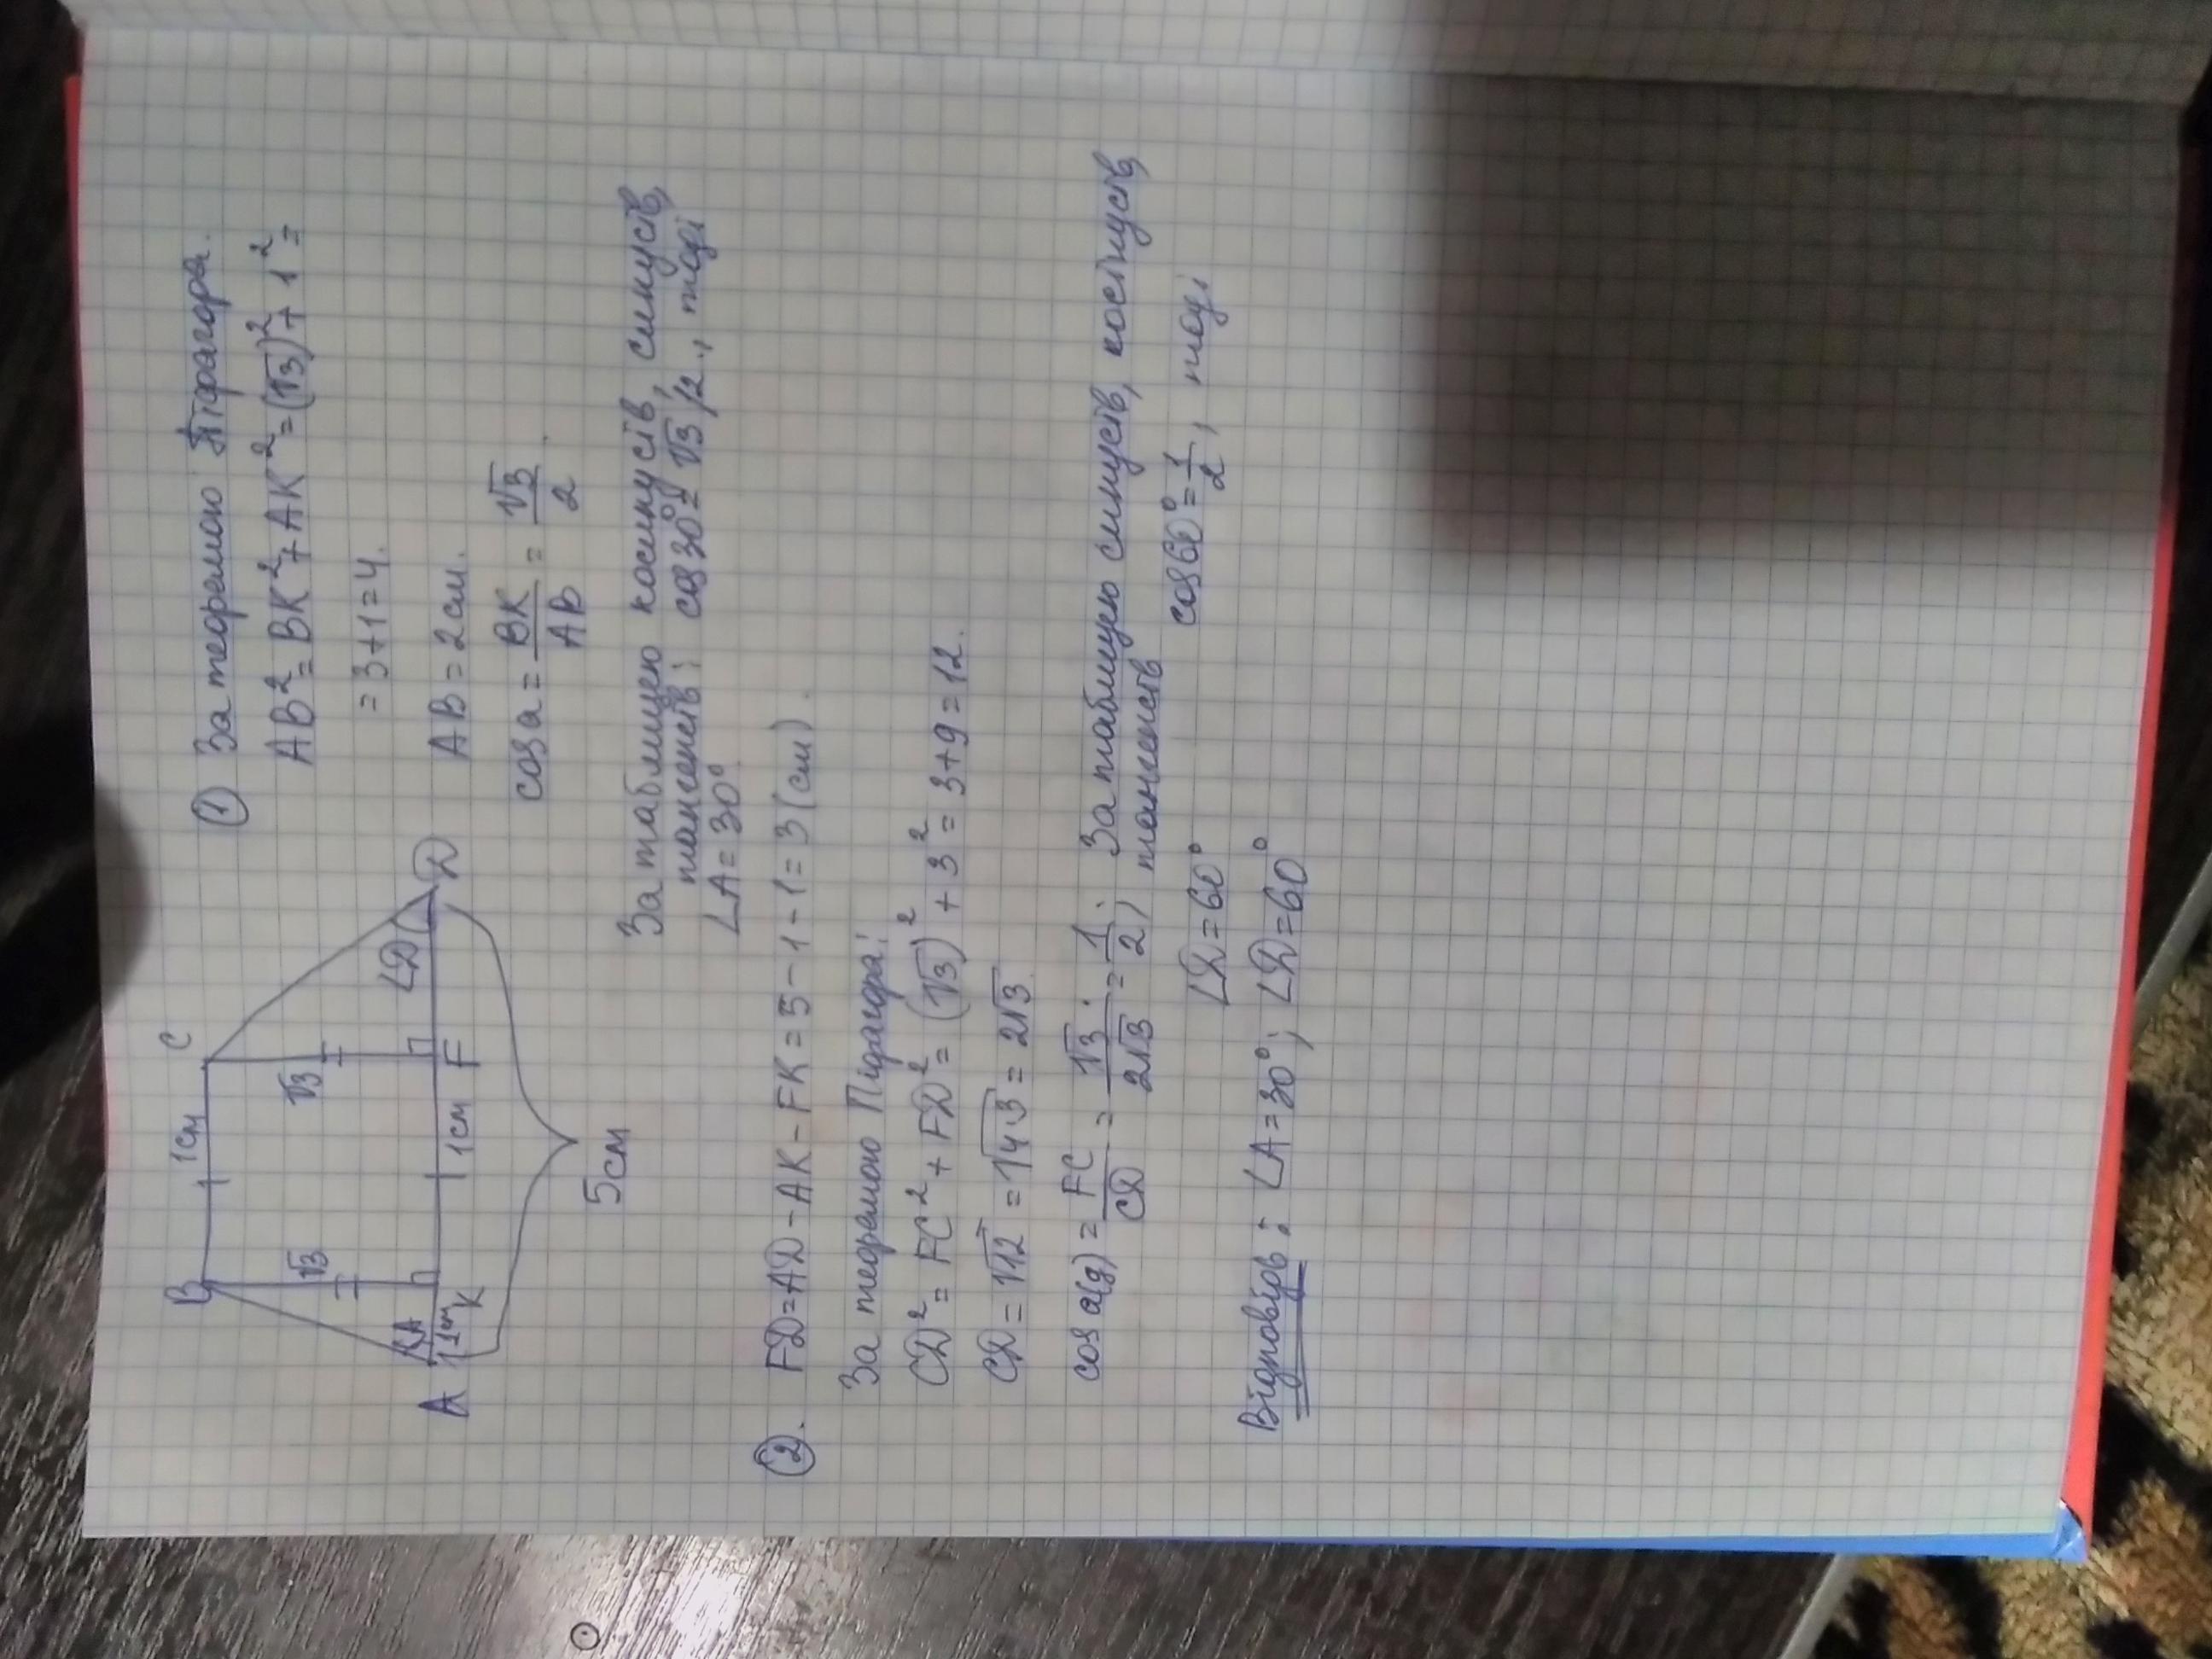 B 1 см C
√3 √3
∠A ∠D
A 1 см K 1 см F D
5 см
① За теоремою Піфагора.
AB² = BK² + AK² = (√3)² + 1² =
= 3 + 1 = 4.
AB = 2 см.
cos a = BK/AB = √3/2.
За таблицею косинусів, синусів,
тангенсів: cos 30° = √3/2., тоді
∠A = 30°
②. FD = AD - AK - FK = 5 - 1 - 1 = 3 (см).
За теоремою Піфагора:
CD² = FC² + FD² = (√3)² + 3² = 3 + 9 = 12.
CD = √12 = √4·3 = 2√3.
cos a(g) = FC/CD = √3/2√3 = 1/2; За таблицею синусів, косинусів,
тангенсів cos 60° = 1/2, тоді
∠D = 60°
Відповідь: ∠A = 30°; ∠D = 60°